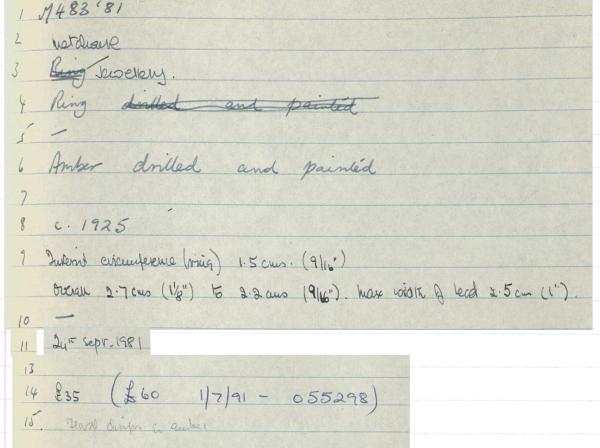 1 M483 '81
2
3 Ring Jewellery.
4 Ring drilled and painted
5 —
6 Amber drilled and painted
7
8 c. 1925
9 Internal circumference (ring) 1.5 cms. (9/16")
Overall 2.7 cms (1⅛") to 2.2 cms (9/16"). Max width of bead 2.5 cm (1").
10 —
11 24th Sept. 1981
13
14 £35 (£60 1/7/91 - 055298)
15. in amber